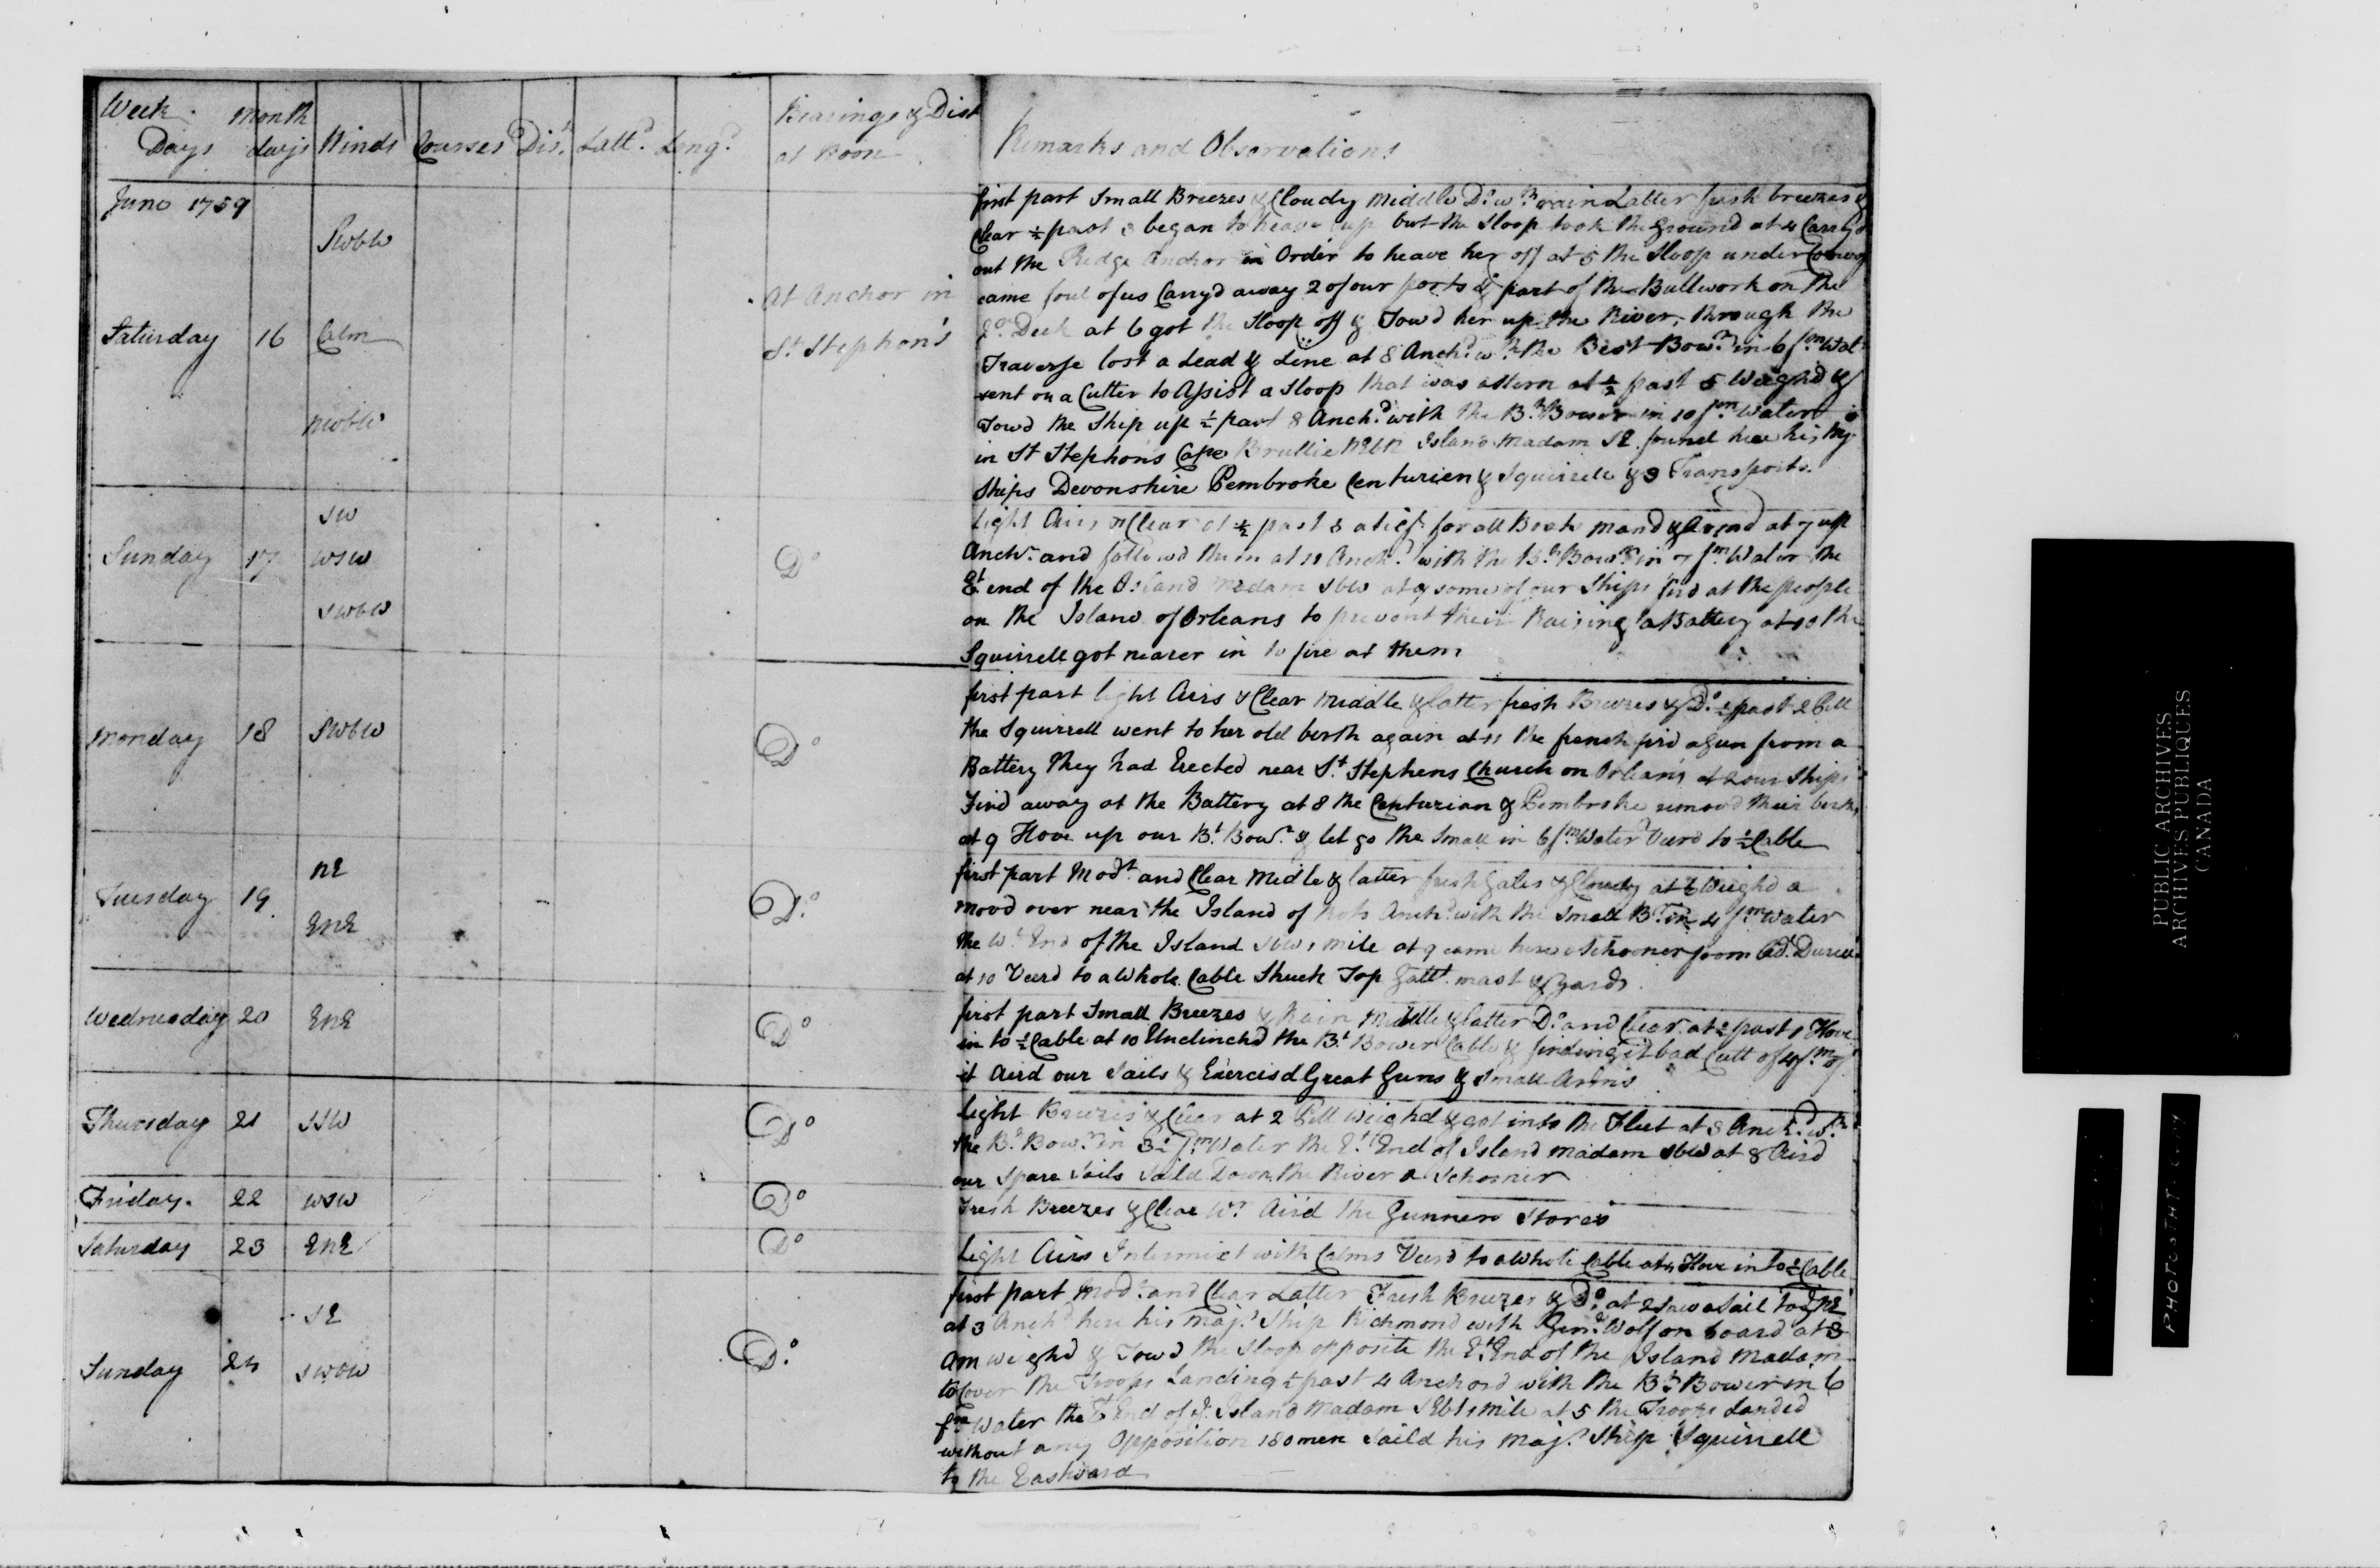 Week Days month days Winds Courses Dist. Lattd. Longd. Bearings & Dist at Noon Remarks and Observations
June 1759
Saturday 16 SWbW Calm NWbW At Anchor in St Stephen's
first part Small Breezes & Cloudy Middle Do. wth rain Latter fresh breezes &
Clear ½ past 3 began to heave up but the Sloop took the Ground at 4 Carry'd
out the Kedge Anchor in Order to heave her off at 5 the Sloop under Convoy
came foul of us Carry'd away 2 of our ports & part of the Bullwork on the
Deck at 6 got the Sloop off & Tow'd her up the River, through the
Traverse lost a Lead & Line at 8 Anchd. wth the Best Bowr. in 6 fm Watr
sent on a Cutter to Assist a Sloop that was astern at ½ past 5 Weighd &
Towd the Ship up ½ past 8 Anchd. with the Bt Bower in 10 fm Water
in St Stephens Cape Brullie NEbN Island Madam SE found here his Maj
Ships Devonshire Pembroke Centurien & Squirrele & 3 Transports.
Sunday 17 SW WSW SWbW Do
Light Airs & Clear at ½ past 8 a for all Boats mand & Armd at 7 up
Anchr. and followd them at 11 Anchd. with the Bt. Bowr. in 7 fm Water the
Et end of the Island Madam SbW at 9 some of our Ships fird at the people
on the Island of Orleans to prevent their Raising a Battery at 10 the
Squirrell got nearer in to fire at them
Monday 18 SWbW Do
first part light Airs & Clear Middle & latter fresh Breezes & Do. ½ past 2 PM
the Squirrell went to her old berth again at 11 the french fir'd a Gun from a
Battery they had Erected near St. Stephens Church on Orleans at 2 our Ships
Fir'd away at the Battery at 8 the Centurian & Pembroke remov'd their berths
at 9 Hove up our Bt. Bowr. & let go the Small in 6 fm Water Veerd to ½ Cable
Tuesday 19 NE ENE Do.
first part Modt. and Clear Midle & latter fresh Gales & Cloudy at 6 Weigh'd a
movd over near the Island of Anchd. with the Small Br. in 4 fm water
the Wt. End of the Island SbW 1 mile at 9 came here a Schooner from Ad.
at 10 Veerd to a Whole Cable Struck Top Gallt. mast & Yards.
Wednesday 20 ENE Do
first part Small Breezes & Rain Middle & latter Do. and Clear at ½ past 1 Hove
in to ½ Cable at 10 Unclinchd the Bt. Bower Cable & finding it bad Cutt of 4 fm of
it Aird our Sails & Exercisd Great Guns & Small Arms
Thursday 21 SSW Do
light Breezes & Clear at 2 PM Weighd & got into the Fleet at 3 Anchd. wth
the Bt. Bowr. in 3½ fm Water the Et. End of Island Madam SbW at 8 Aird
our Spare Sails Saild Down the River a Schooner
Friday. 22 WSW Do
Fresh Breezes & Clear Wr. Aird the Gunners Stores
Saturday 23 ENE Do
Light Airs Intermixt with Calms Veerd to a Whole Cable at 4 Hove in to ½ Cable
Sunday 24 SE SWbW Do.
first part Modt. and Clear Latter Fresh Breezes & Do. at 2 Saw a Sail to ye NE
at 3 Anchd here his Maj. Ship Richmond with Genl. Wolf on board at 3
Am weighd & Towd the Sloop opposite the Et. End of the Island Madam
to Cover the Troops Landing ½ past 4 Anchord with the Bt. Bower in 6
fm Water the Et End of ye. Island Madam SEbS 1 mile at 5 the Troops Landed
without any Opposition 180 men Saild his Maj. Ship Squirrell
to the Eastward
PUBLIC ARCHIVES
ARCHIVES PUBLIQUES
CANADA
PHOTOSTAT COPY